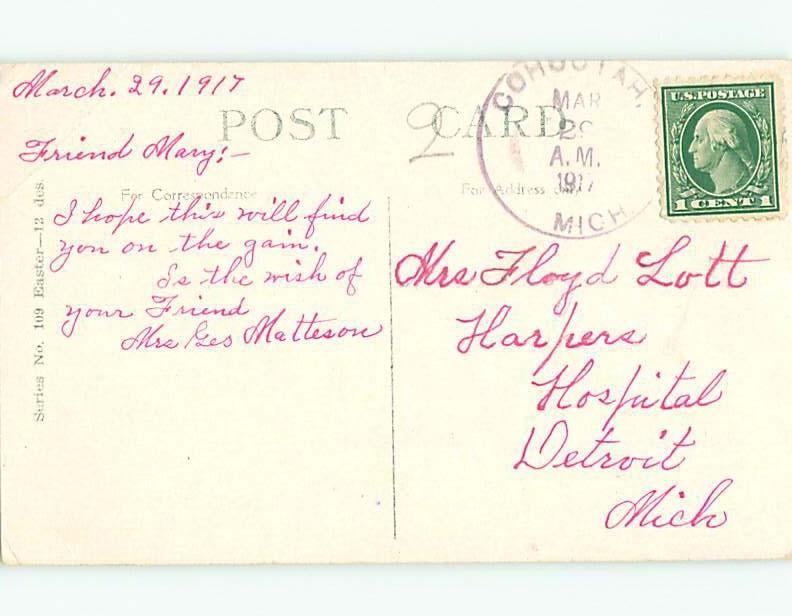 March. 29. 1917
POST CARD
2
COHOCTAH,
MAR
29
A.M.
1917
MICH.
U.S. POSTAGE
1 CENT 1
Friend Mary:—
For Correspondence
For Address only
I hope this will find
you on the gain.
Is the wish of
your Friend
Mrs Geo Matteson
Mrs Floyd Lott
Harpers
Hospital
Detroit
Mich
Series No. 109 Easter—12 des.